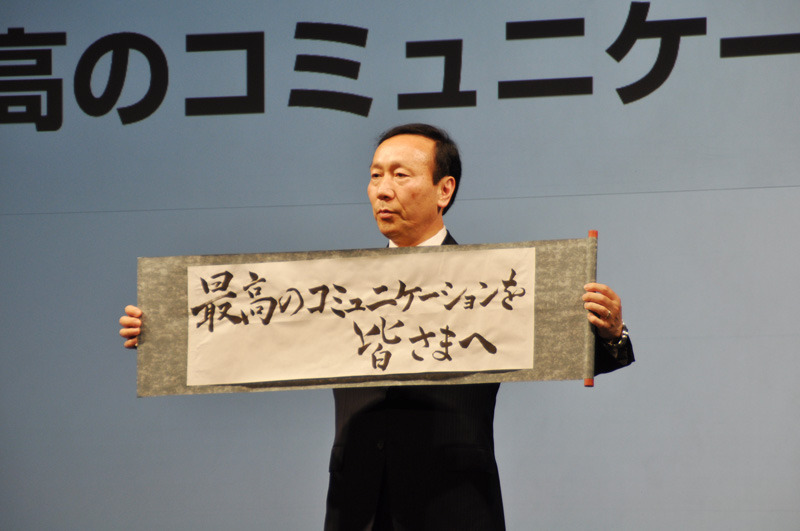 高のコミュニケー
最高のコミュニケーションを
皆さまへ